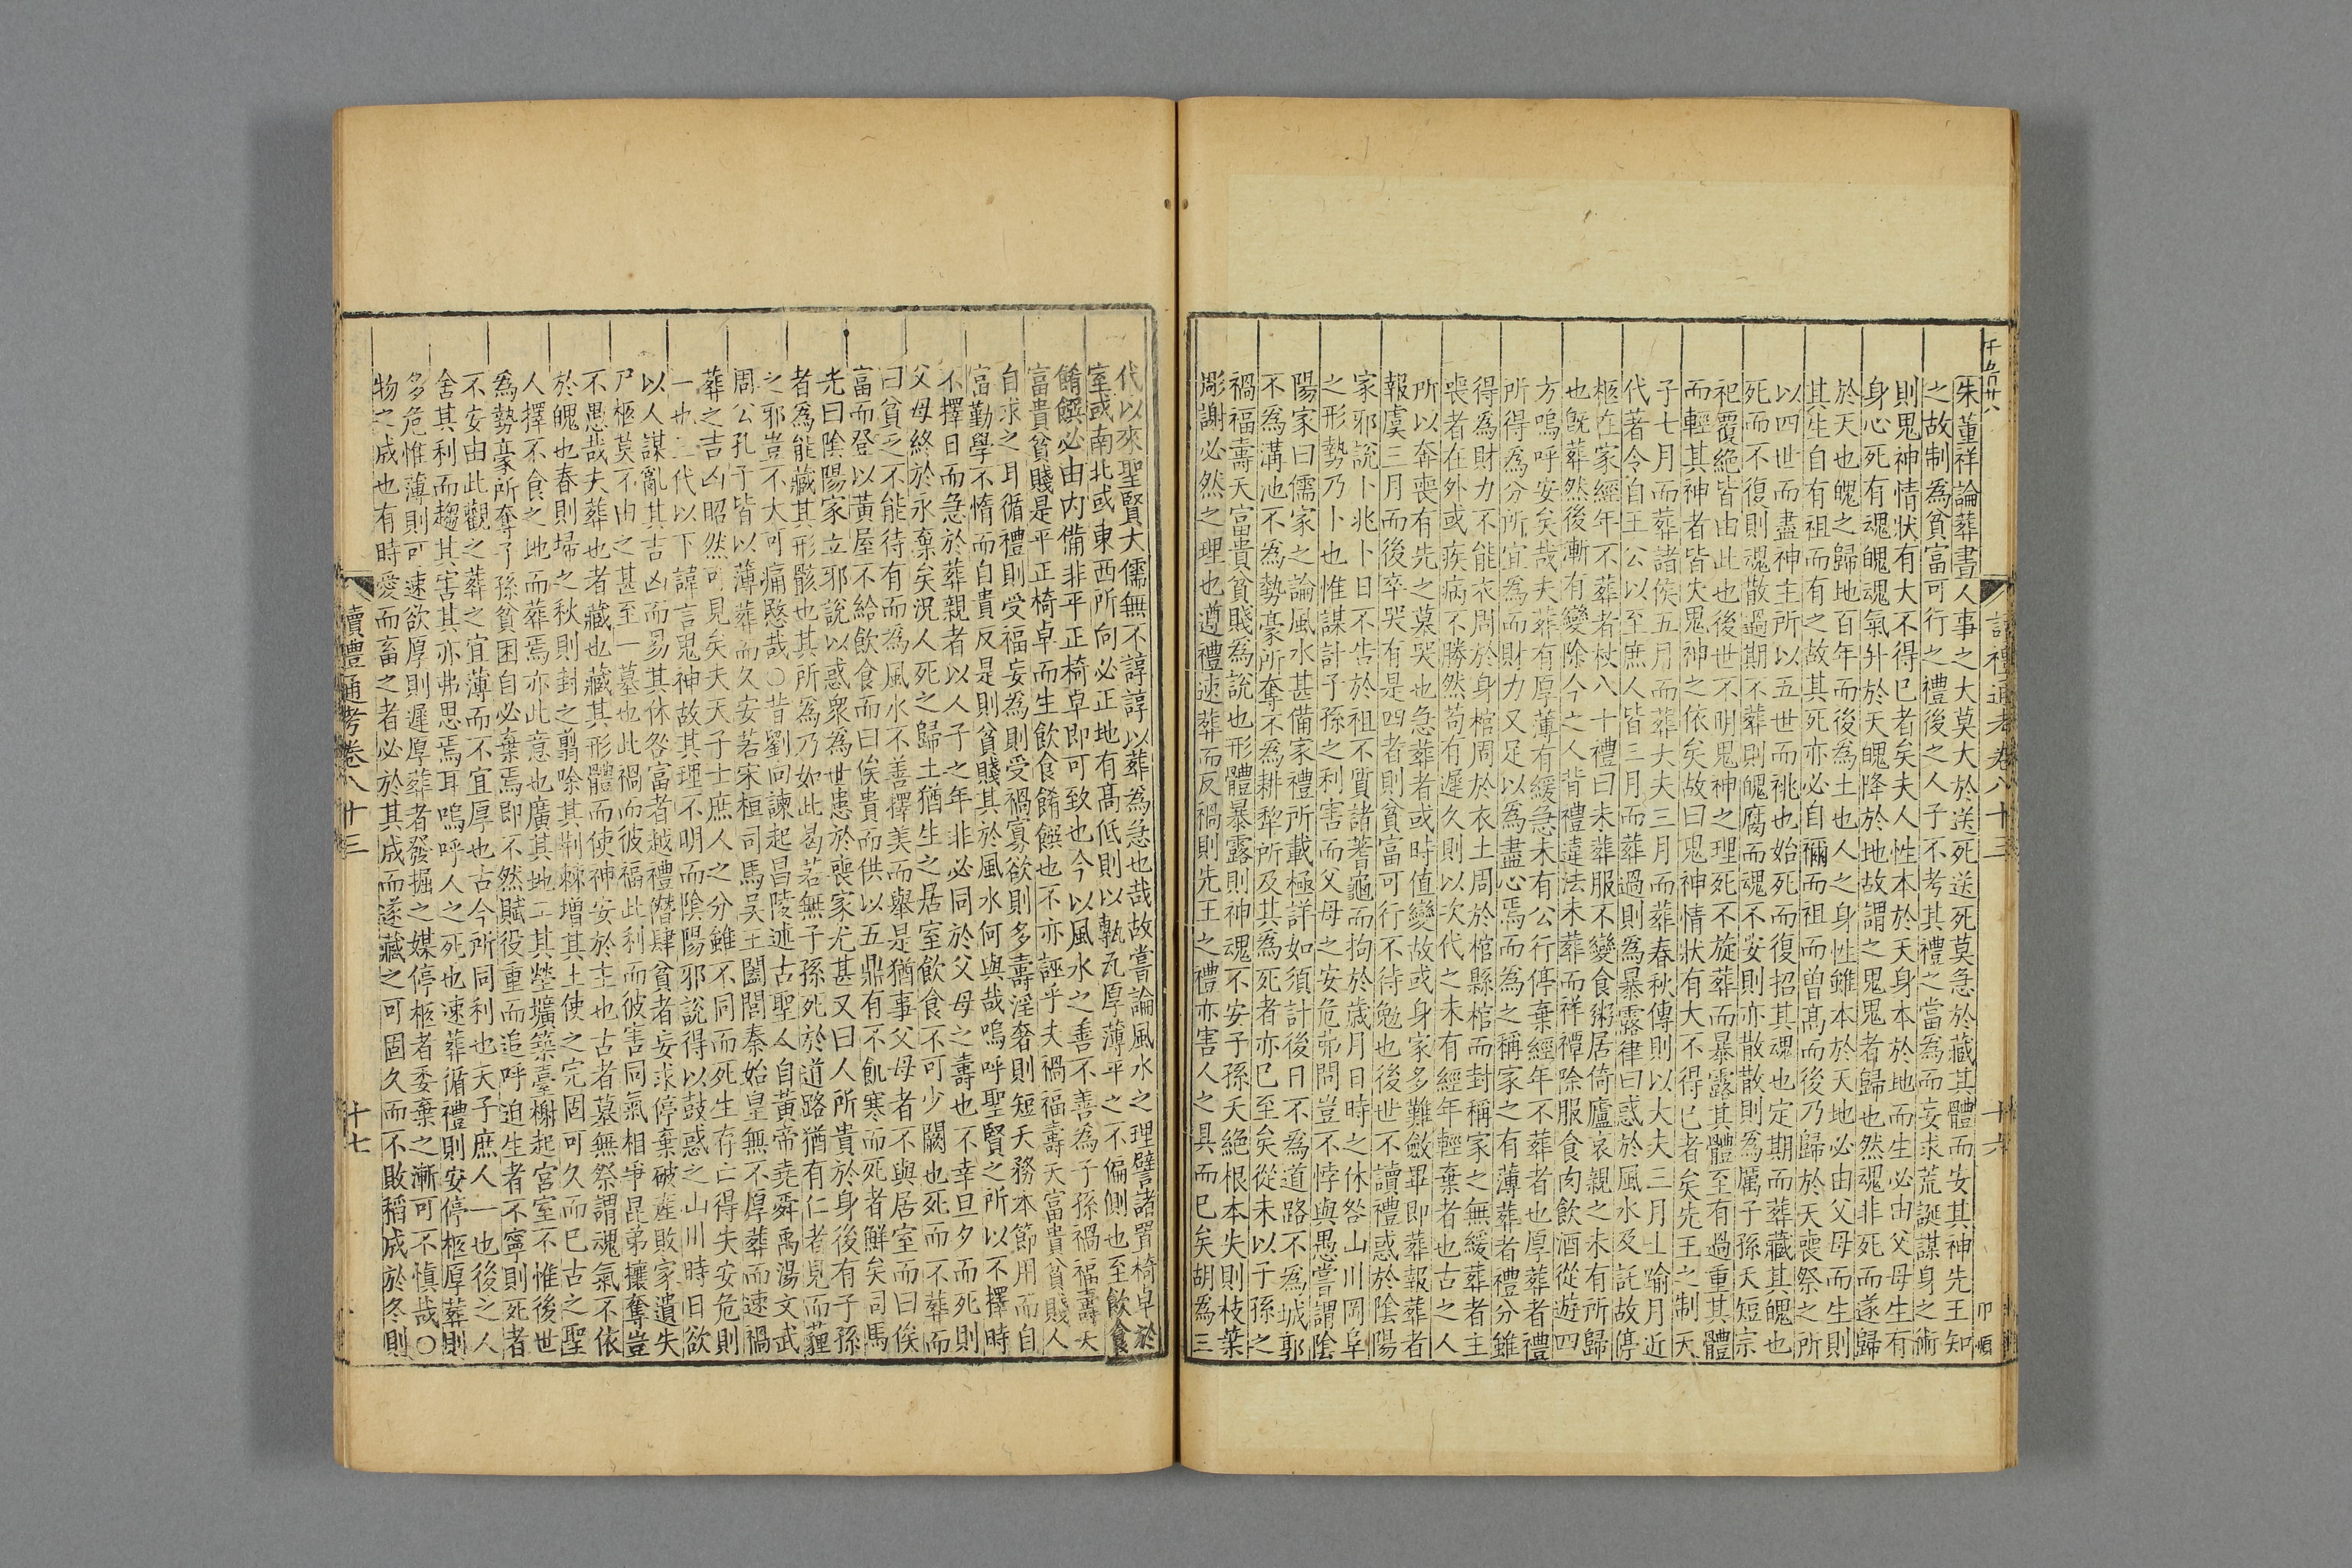 千五百廿八
讀禮通考卷八十三
十六
朱董祥論葬書人事之大莫大於送死送死莫急於藏其體而安其神先王知
之故制為貧富可行之禮後之人子不考其禮之當為而妄求荒誕謀身之術
則鬼神情狀有大不得已者矣夫人性本於天身本於地而生必由父母生有
身心死有魂魄魂氣升於天魄降於地故謂之鬼鬼者歸也然魂非死而遂歸
於天也魄之歸地百年而後為土也人之身性雖本於天地必由父母而生則
其生自有祖而有之故其死亦必自禰而祖而曾髙而後乃歸於天喪祭之所
以四世而盡神主所以五世而祧也始死而復招其魂也定期而葬藏其魄也
死而不復則魂散過期不葬則魄腐而魂不安則亦散散則為厲子孫夭短宗
祀覆絶皆由此也後世不明鬼神之理死不旋葬而暴露其體至有過重其體
而輕其神者皆失鬼神之依矣故曰鬼神情狀有大不得已者矣先王之制天
子七月而葬諸侯五月而葬大夫三月而葬春秋傳則以大夫三月士踰月近
代著令自王公以至庶人皆三月而葬過則為暴露律曰惑於風水及託故停
柩在家經年不葬者杖八十禮曰未葬服不變食粥居倚廬哀親之未有所歸
也旣葬然後漸有變除今之人背禮違法未葬而祥禫除服食肉飲酒從遊四
方嗚呼安矣哉夫葬有厚薄有緩急未有公行停棄經年不葬者也厚葬者禮
所得為分所宜為而財力又足以為盡心焉而為之稱家之有薄葬者禮分雖
得為財力不能衣周於身棺周於衣土周於棺縣棺而封稱家之無緩葬者主
喪者在外或疾病不勝然苟有遲久則以次代之未有經年輕棄者也古之人
所以奔喪有先之墓哭也急葬者或時值變故或身家多難斂畢即葬報葬者
報虞三月而後卒哭有是四者則貧富可行不待勉也後世不讀禮惑於陰陽
家邪說卜兆卜日不告於祖不質諸蓍龜而拘於歲月日時之休咎山川岡阜
之形勢乃卜也惟謀計子孫之利害而父母之安危弗問豈不悖與愚嘗謂陰
陽家曰儒家之論風水甚備家禮所載極詳如須計後日不為道路不為城郭
不為溝池不為勢豪所奪不為耕犂所及其為死者亦已至矣從未以子孫之
禍福壽夭富貴貧賤為說也形體暴露則神魂不安子孫夭絶根本失則枝葉
彫謝必然之理也遵禮速葬而反禍則先王之禮亦害人之具而已矣胡為三
代以來聖賢大儒無不諄諄以葬為急也哉故嘗論風水之理譬諸置椅卓於
室或南北或東西所向必正地有髙低則以甎瓦厚薄平之不偏側也至飲食
餚饌必由内備非平正椅卓即可致也今以風水之善不善為子孫禍福壽夭
富貴貧賤是平正椅卓而生飲食餚饌也不亦誣乎夫禍福壽夭富貴貧賤人
自求之耳循禮則受福妄為則受禍寡欲則多壽淫奢則短夭務本節用而自
富勤學不惰而自貴反是則貧賤其於風水何與哉嗚呼聖賢之所以不擇時
不擇日而急於葬親者以人子之年非必同於父母之壽也不幸旦夕而死則
父母終於永棄矣況人死之歸土猶生之居室飲食不可少闕也死而不葬而
曰貧乏不能待有而為風水不善擇美而舉是猶事父母者不與居室而曰俟
富而登以黃屋不給飲食而曰俟貴而供以五鼎有不飢寒而死者鮮矣司馬
光曰陰陽家立邪說以惑衆為世患於喪家尤甚又曰人所貴於身後有子孫
者為能藏其形骸也其所為乃如此曷若無子孫死於道路猶有仁者見而殣
之邪豈不大可痛愍哉○昔劉向諫起昌陵述古聖人自黃帝堯舜禹湯文武
周公孔子皆以薄葬而久安若宋桓司馬吳王闔閭秦始皇無不厚葬而速禍
葬之吉凶昭然可見矣夫天子士庶人之分雖不同而死生存亡得失安危則
一也三代以下諱言鬼神故其理不明而陰陽邪說得以鼓惑之山川時日欲
以人謀亂其吉凶而易其休咎富者越禮僭肆貧者妄求停棄破産敗家遺失
尸柩莫不由之甚至一墓也此禍而彼福此利而彼害同氣相爭昆弟攘奪豈
不愚哉夫葬也者藏也藏其形體而使神安於主也古者墓無祭謂魂氣不依
於魄也春則埽之秋則封之翦除其荆棘增其土使之完固可久而已古之聖
人擇不食之地而葬焉亦此意也廣其地工其塋壙築臺榭起宮室不惟後世
為勢豪所奪子孫貧困自必棄焉即不然賦役重而追呼迫生者不寧則死者
不安由此觀之葬之宜薄而不宜厚也古今所同利也天子庶人一也後之人
舍其利而趨其害其亦弗思焉耳嗚呼人之死也速葬循禮則安停柩厚葬則
多危惟薄則可速欲厚則遲厚葬者發掘之媒停柩者委棄之漸可不慎哉○
物之成也有時愛而畜之者必於其成而遂藏之可固久而不敗稻成於冬則
讀禮通考卷八十三
十七